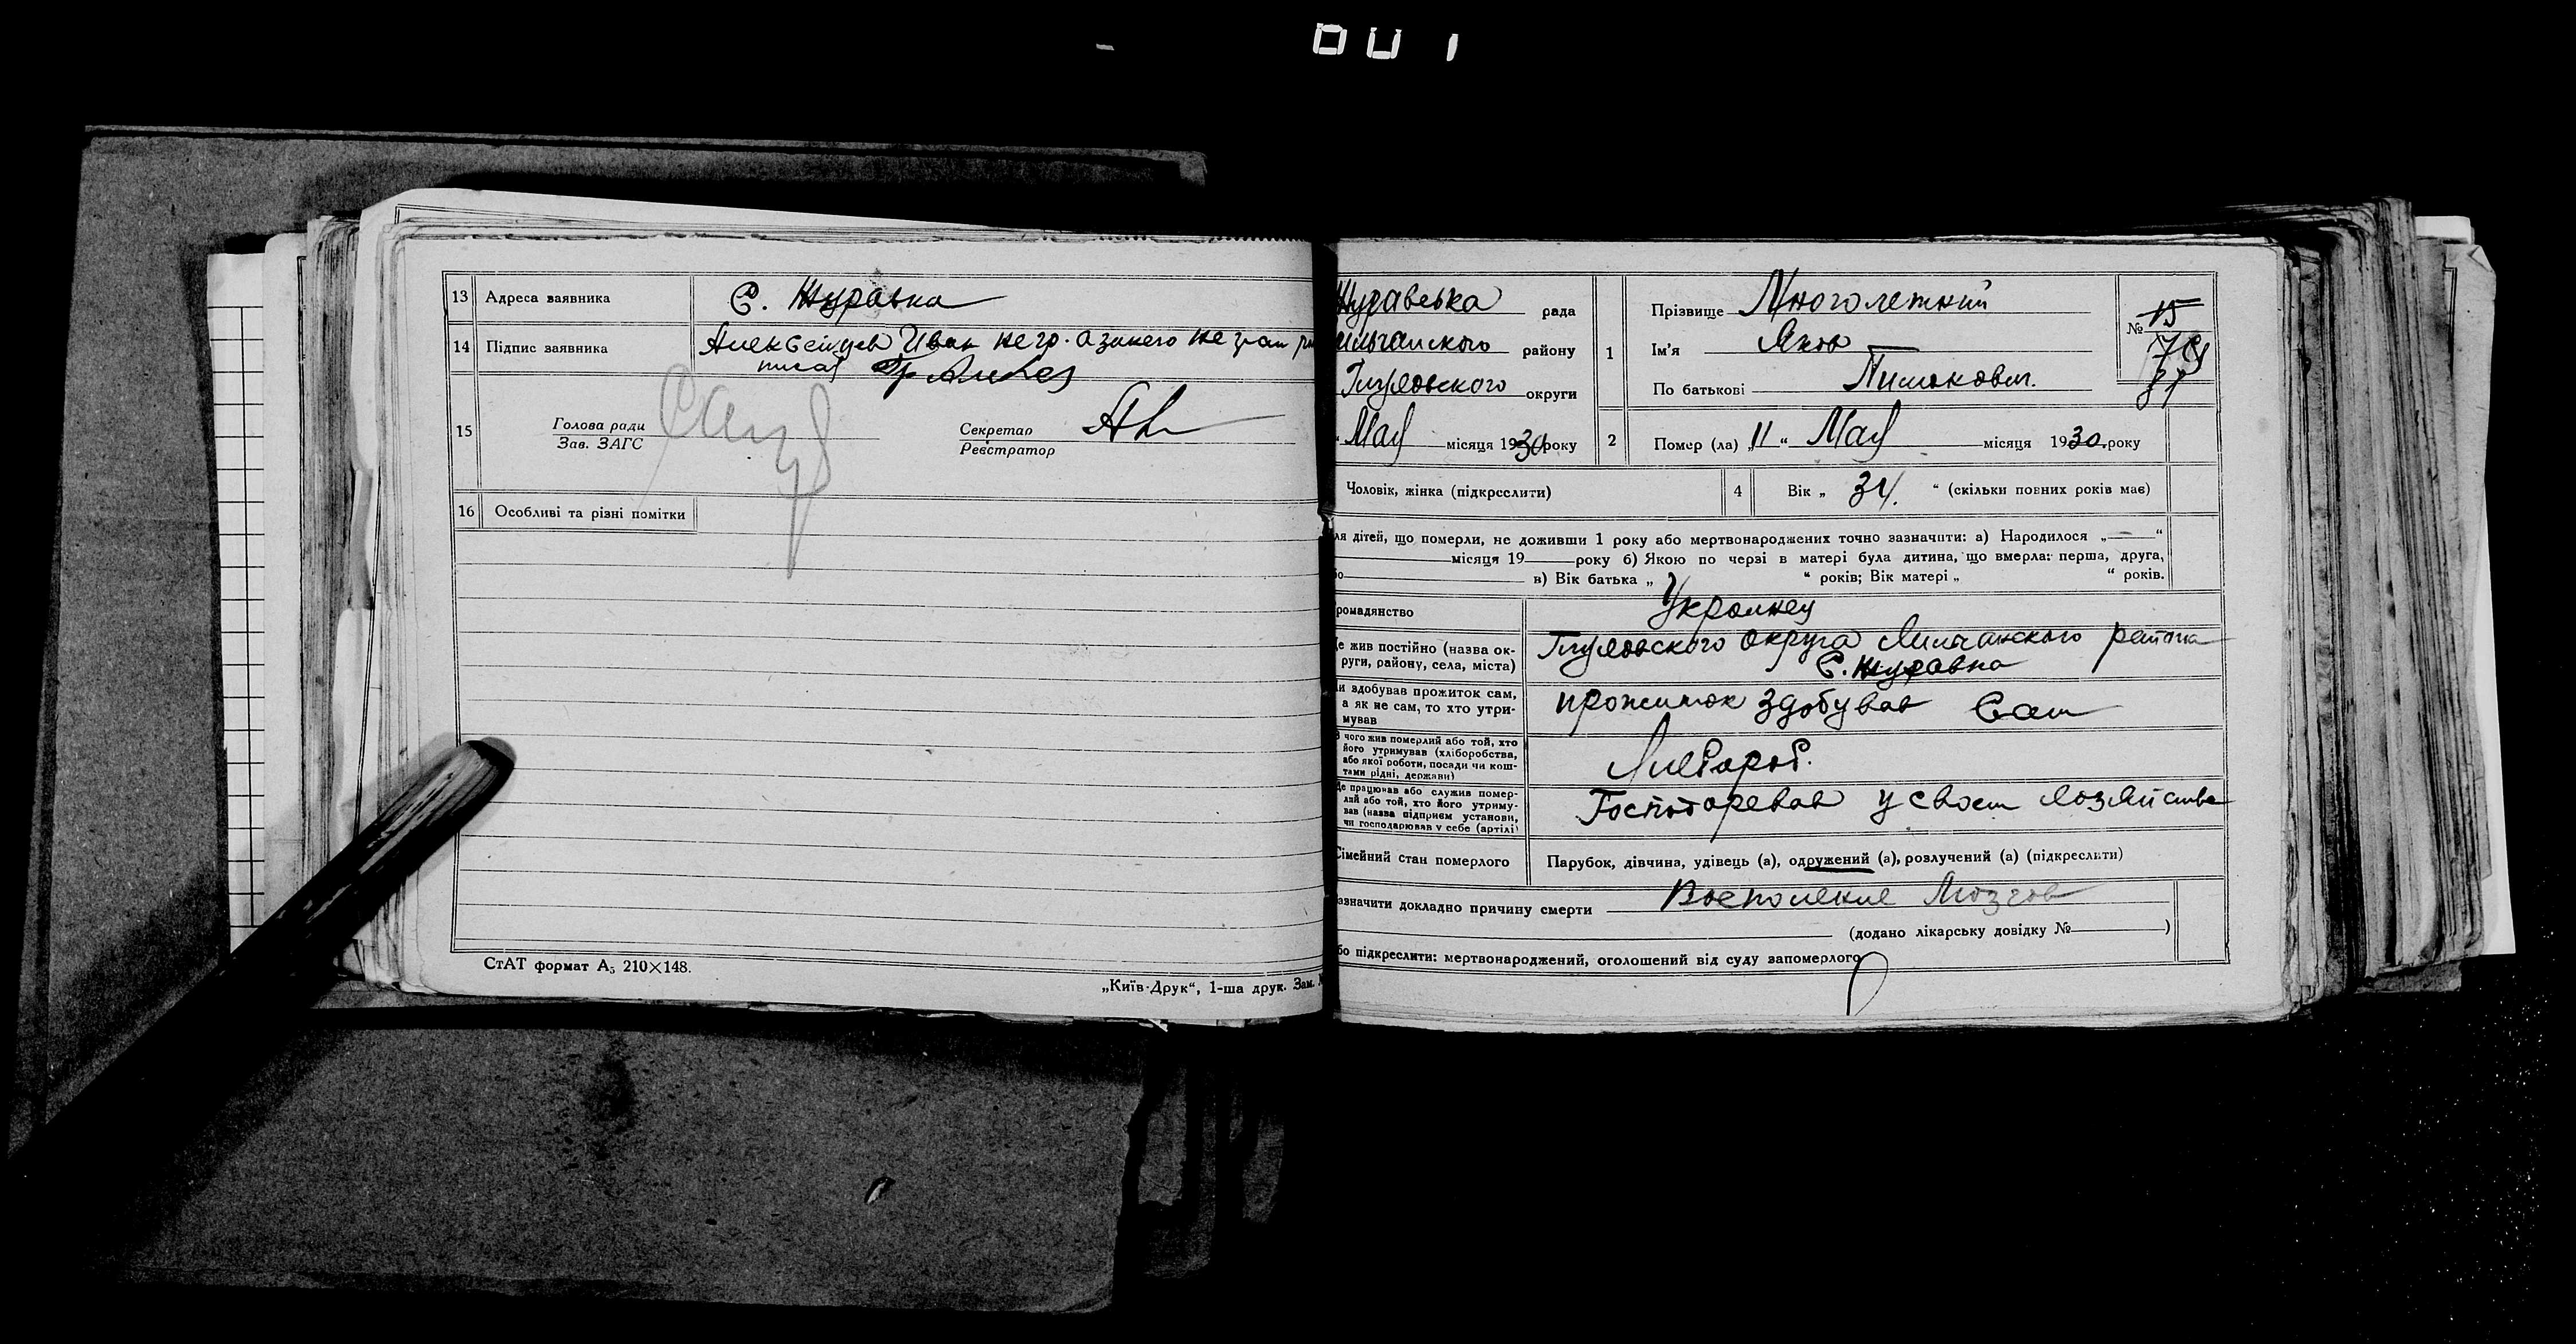 13 Адреса заявника С. Журавка
14 Підпис заявника Алексейцев Иван негр. а за него
писав
15 Голова ради
Зав. ЗАГС
Секретар
Реєстратор
16 Особливі та різні помітки
СтАТ формат А₅ 210×148.
„Київ-Друк“, 1-ша друк. Зам.
Журавська рада
району
Глуховского округи
Мая місяця 1930 року
1 Прізвище Многолетний
Ім'я Яков
По батькові
№ 15
2 Помер (ла) „ 11 “ Мая місяця 1930. року
Чоловік, жінка (підкреслити)
4 Вік „ 34. “ (скільки повних років має)
ля дітей, що померли, не доживши 1 року або мертвонароджених точно зазначити: а) Народилося „ — “
місяця 19 року б) Якою по черзі в матері була дитина, що вмерла: перша, друга,
бо в) Вік батька „ “ років; Вік матері „ “ років.
ромадянство Украинец
е жив постійно (назва ок-
руги, району, села, міста)
Глуховского округа района
С. Журавка
и здобував прожиток сам,
а як не сам, то хто утри-
мував
прожиток здобував Сам
з чого жив померлий або той, хто
його утримував (хліборобства,
або якої роботи, посади чи кош-
тами рідні, держави)
Хлебороб.
е працював або служив помер-
лий або той, хто його утриму-
вав (назва підприєм установи,
чи господарював у себе (артілі)
Господаревав у своем хозяйстве
Сімейний стан померлого Парубок, дівчина, удівець (а), одружений (а), розлучений (а) (підкреслити)
азначити докладно причину смерти Восполение Мозгов
(додано лікарську довідку № )
бо підкреслити: мертвонароджений, оголошений від суду запомерлого